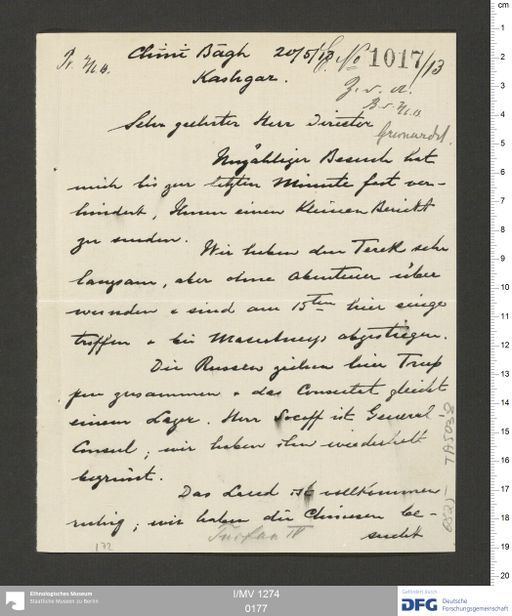 Chini Bagh 20/5/13
Kashgar.
No 1017/13
Sehr geehrter Herr Director
Unzähliger Besuch hat
mich bis zur letzten Minute fast ver-
hindert, Ihnen einen kleinen Bericht
zu senden.
Wir haben den Terek sehr
langsam, aber ohne Abenteuer über
wunden & sind am 15ten hier einge
troffen & bei Macartneys abgestiegen.
Die Russen ziehen hier Trup
pen zusammen & das Consulat gleicht
einem Lager. Herr is General
Consul; wir haben ihn wiederholt
begrüsst.
Das Land ist vollkommen
ruhig; wir haben die Chinesen be-
sucht
Turfan IV
172
TA 5038
I/MV 1274
0177
Ethnologisches Museum
Staatliche Museen zu Berlin
Gefördert durch
DFG Deutsche
Forschungsgemeinschaft
cm
1
2
3
4
5
6
7
8
9
10
11
12
13
14
15
16
17
18
19
20